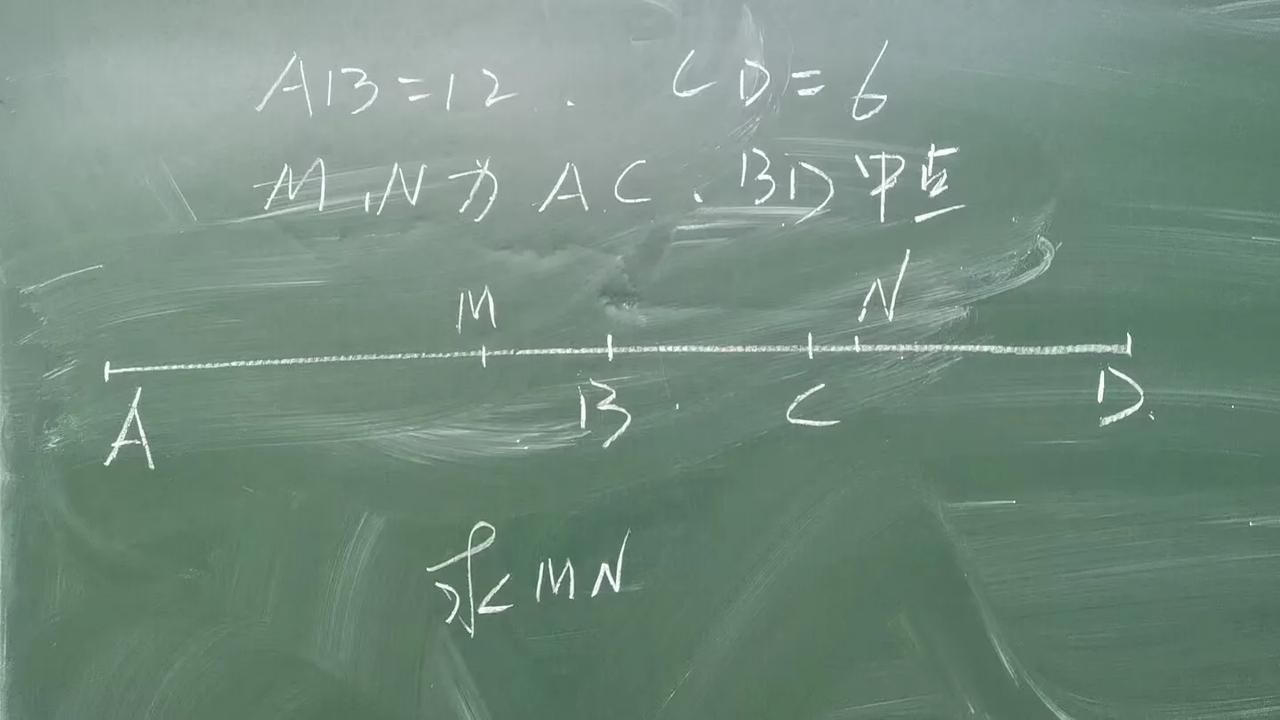 AB=12. CD=6
M,N为AC、BD中点
M N
A B C D
求MN